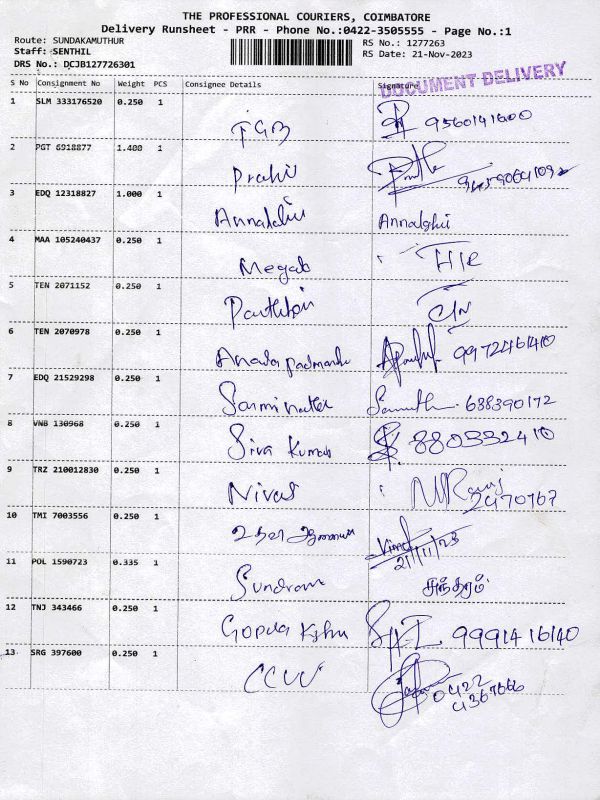 THE PROFESSIONAL COURIERS, COIMBATORE
Delivery Runsheet - PRR - Phone No.:0422-3505555 - Page No.:1
Route: SUNDAKAMUTHUR
Staff: SENTHIL
DRS No.: DCJB127726301
RS No.: 1277263
RS Date: 21-Nov-2023
DOCUMENT DELIVERY
S No Consignment No Weight PCS Consignee Details Signature
1 SLM 333176520 0.250 1 9560141600
2 PGT 6918877 1.400 1
3 EDQ 12318827 1.000 1
4 MAA 105240437 0.250 1 Megab
5 TEN 2071152 0.250 1
6 TEN 2070978 0.250 1 9972461410
7 EDQ 21529298 0.250 1 638390172
8 VNB 130968 0.250 1 Siva Kumar 880332410
9 TRZ 210012830 0.250 1 Nivas 2470767
10 TMI 7003556 0.250 1 21/11/23
11 POL 1590723 0.335 1 Sundram சுந்தரம்
12 TNJ 343466 0.250 1 9991416140
13 SRG 397600 0.250 1 0422
4367666